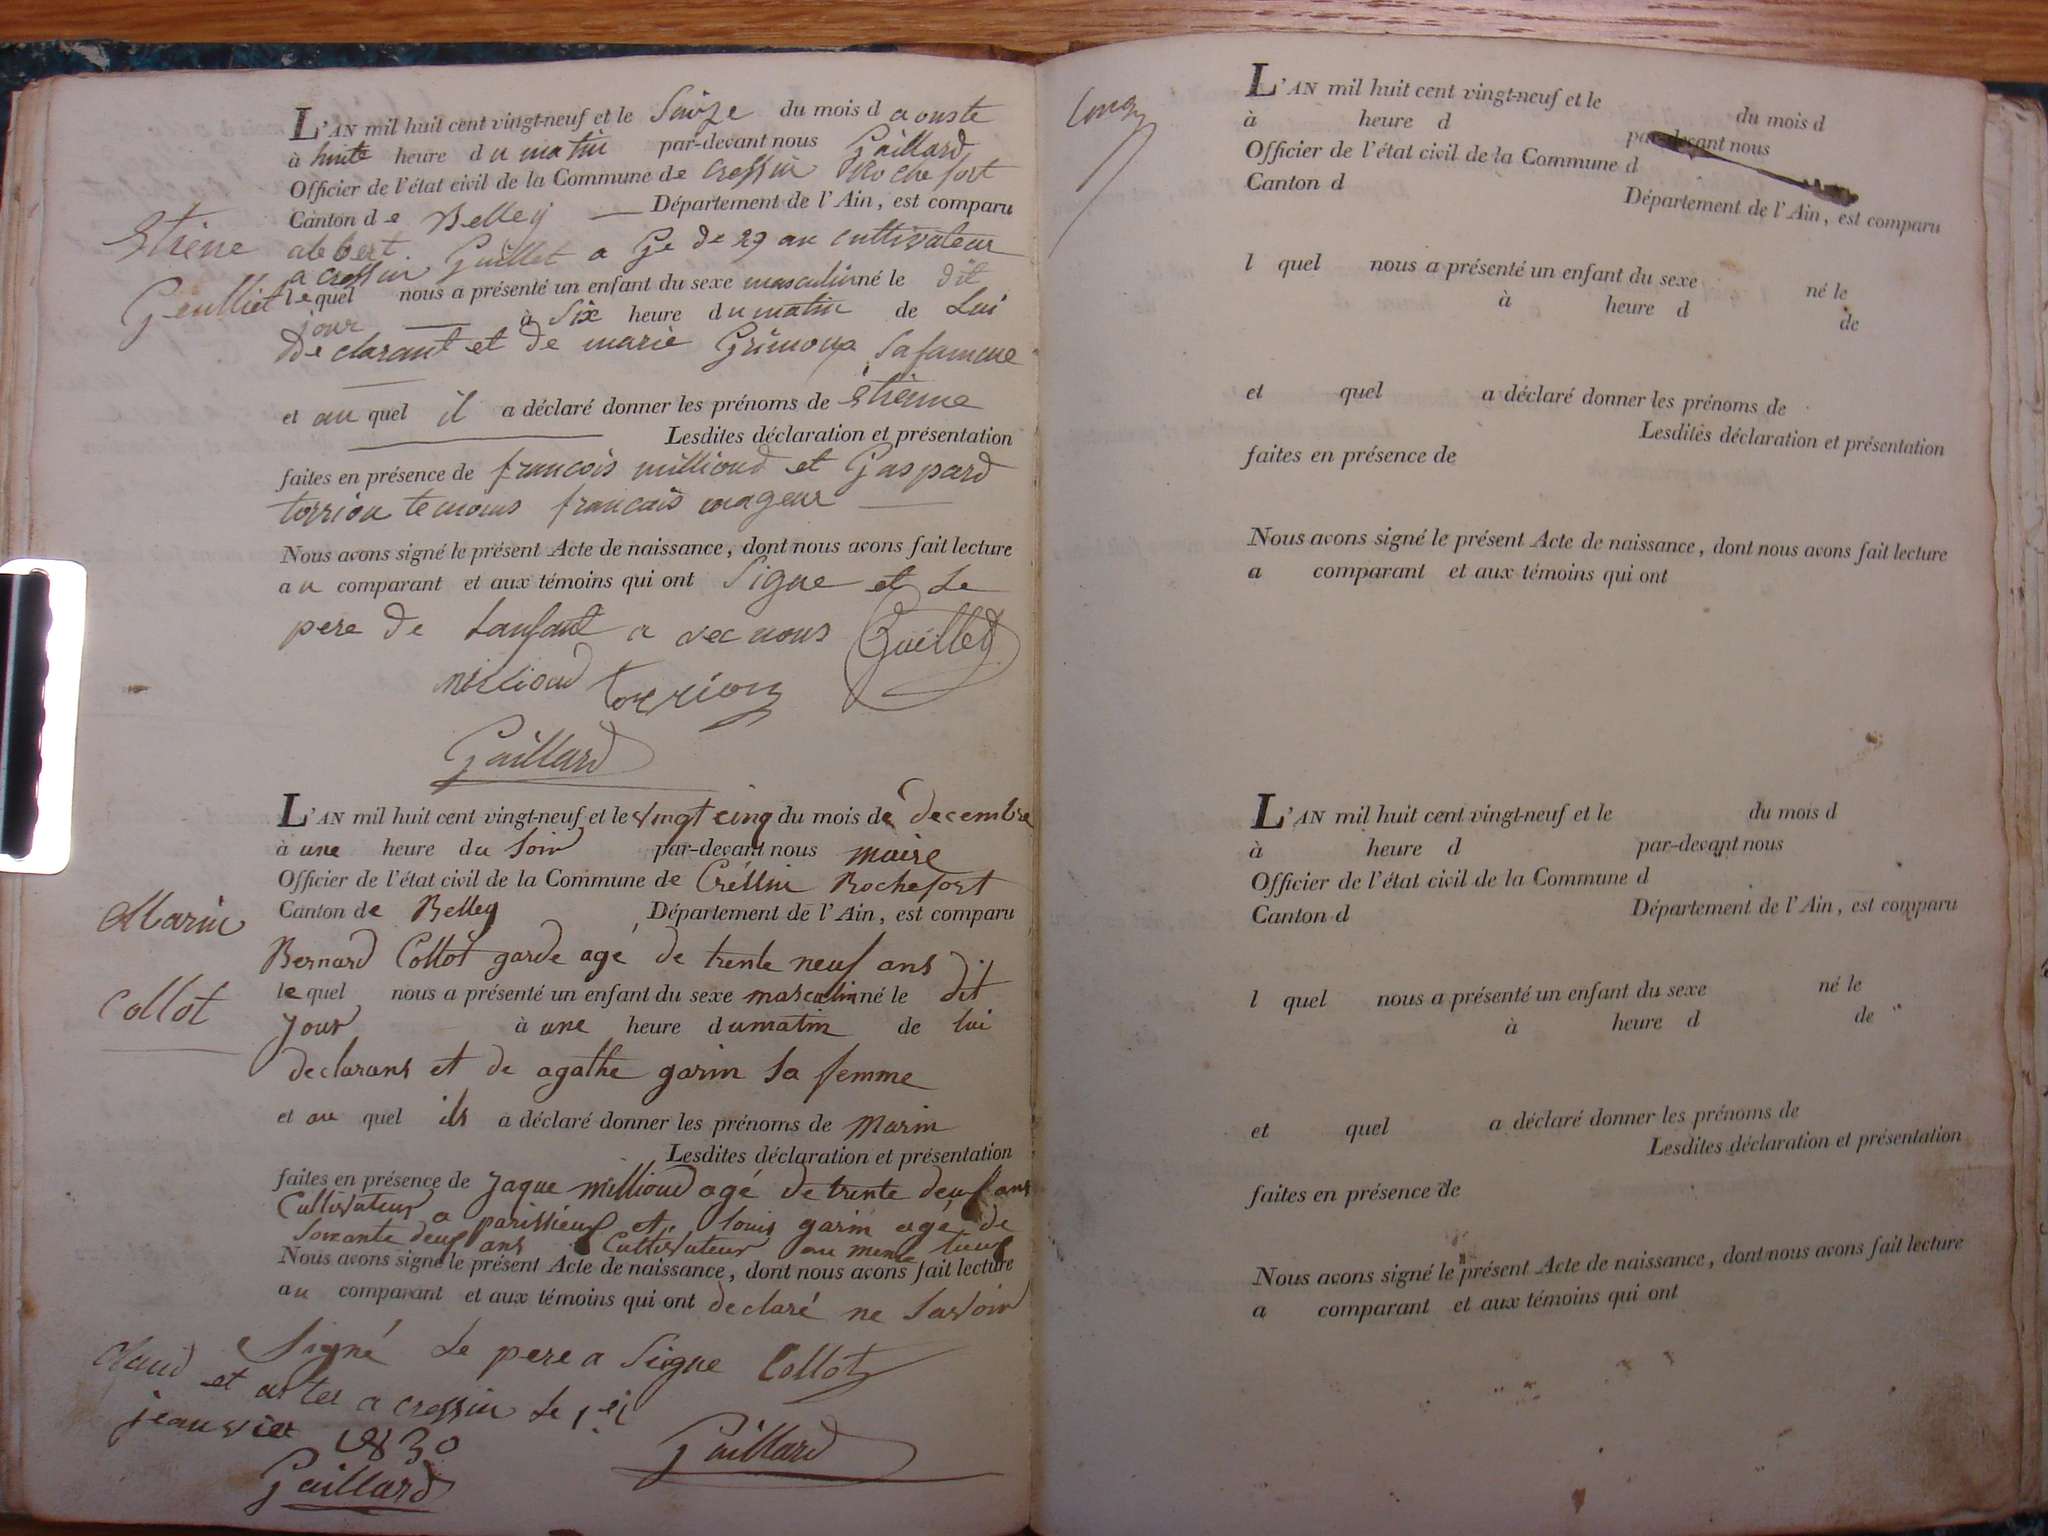 L'AN mil huit cent vingt-neuf et le Saize du mois d aouste
à huite heure du matin par-devant nous Gaillard
Officier de l'état civil de la Commune de Cressin Rochefort
Canton de Belley Département de l'Ain, est comparu
Etiene
Geulliet
albert Guillet a Ge de 29 an cultivateur
a cressin
lequel nous a présenté un enfant du sexe masculin né le dit
jour à Six heure du matin de Lui
De clarant et de marie Grimoux Sa famme
et au quel il a déclaré donner les prénoms de étienne
Lesdites déclaration et présentation
faites en présence de francois millioud et Gaspard
torrion temoins francais mageur
Nous avons signé le présent Acte de naissance, dont nous avons fait lecture
au comparant et aux témoins qui ont Signe et Le
pere de Lanfant a vec nous Guillet
millioud torrion
Gaillard
L'AN mil huit cent vingt-neuf et le vingt cinq du mois de decembre
à une heure du Soir par-devant nous maire
Officier de l'état civil de la Commune de Créssin Rochefort
Canton de Belley Département de l'Ain, est comparu
Marin
Collot
Bernard Collot garde agé de trente neuf ans
lequel nous a présenté un enfant du sexe masculin né le dit
jour à une heure du matin de lui
declarans et de agathe garin Sa femme
et au quel ils a déclaré donner les prénoms de Marin
Lesdites déclaration et présentation
faites en présence de Jaque millioud agé de trente deux ans
Cultivateur a parissieux et louis garin agé de
Soixante deux ans Cultivateur au meme lieux
Nous avons signé le présent Acte de naissance, dont nous avons fait lecture
au comparant et aux témoins qui ont declaré ne Savoir
Signé Le pere a Signe Collot
et a cressin Le 1er
jeanvier 1830
Gaillard
Gaillard
L'AN mil huit cent vingt-neuf et le du mois d
à heure d par-devant nous
Officier de l'état civil de la Commune d
Canton d Département de l'Ain, est comparu
l quel nous a présenté un enfant du sexe né le
à heure d de
et quel a déclaré donner les prénoms de
Lesdites déclaration et présentation
faites en présence de
Nous avons signé le présent Acte de naissance, dont nous avons fait lecture
a comparant et aux témoins qui ont
L'AN mil huit cent vingt-neuf et le du mois d
à heure d par-devant nous
Officier de l'état civil de la Commune d
Canton d Département de l'Ain, est comparu
l quel nous a présenté un enfant du sexe né le
à heure d de
et quel a déclaré donner les prénoms de
Lesdites déclaration et présentation
faites en présence de
Nous avons signé le présent Acte de naissance, dont nous avons fait lecture
a comparant et aux témoins qui ont